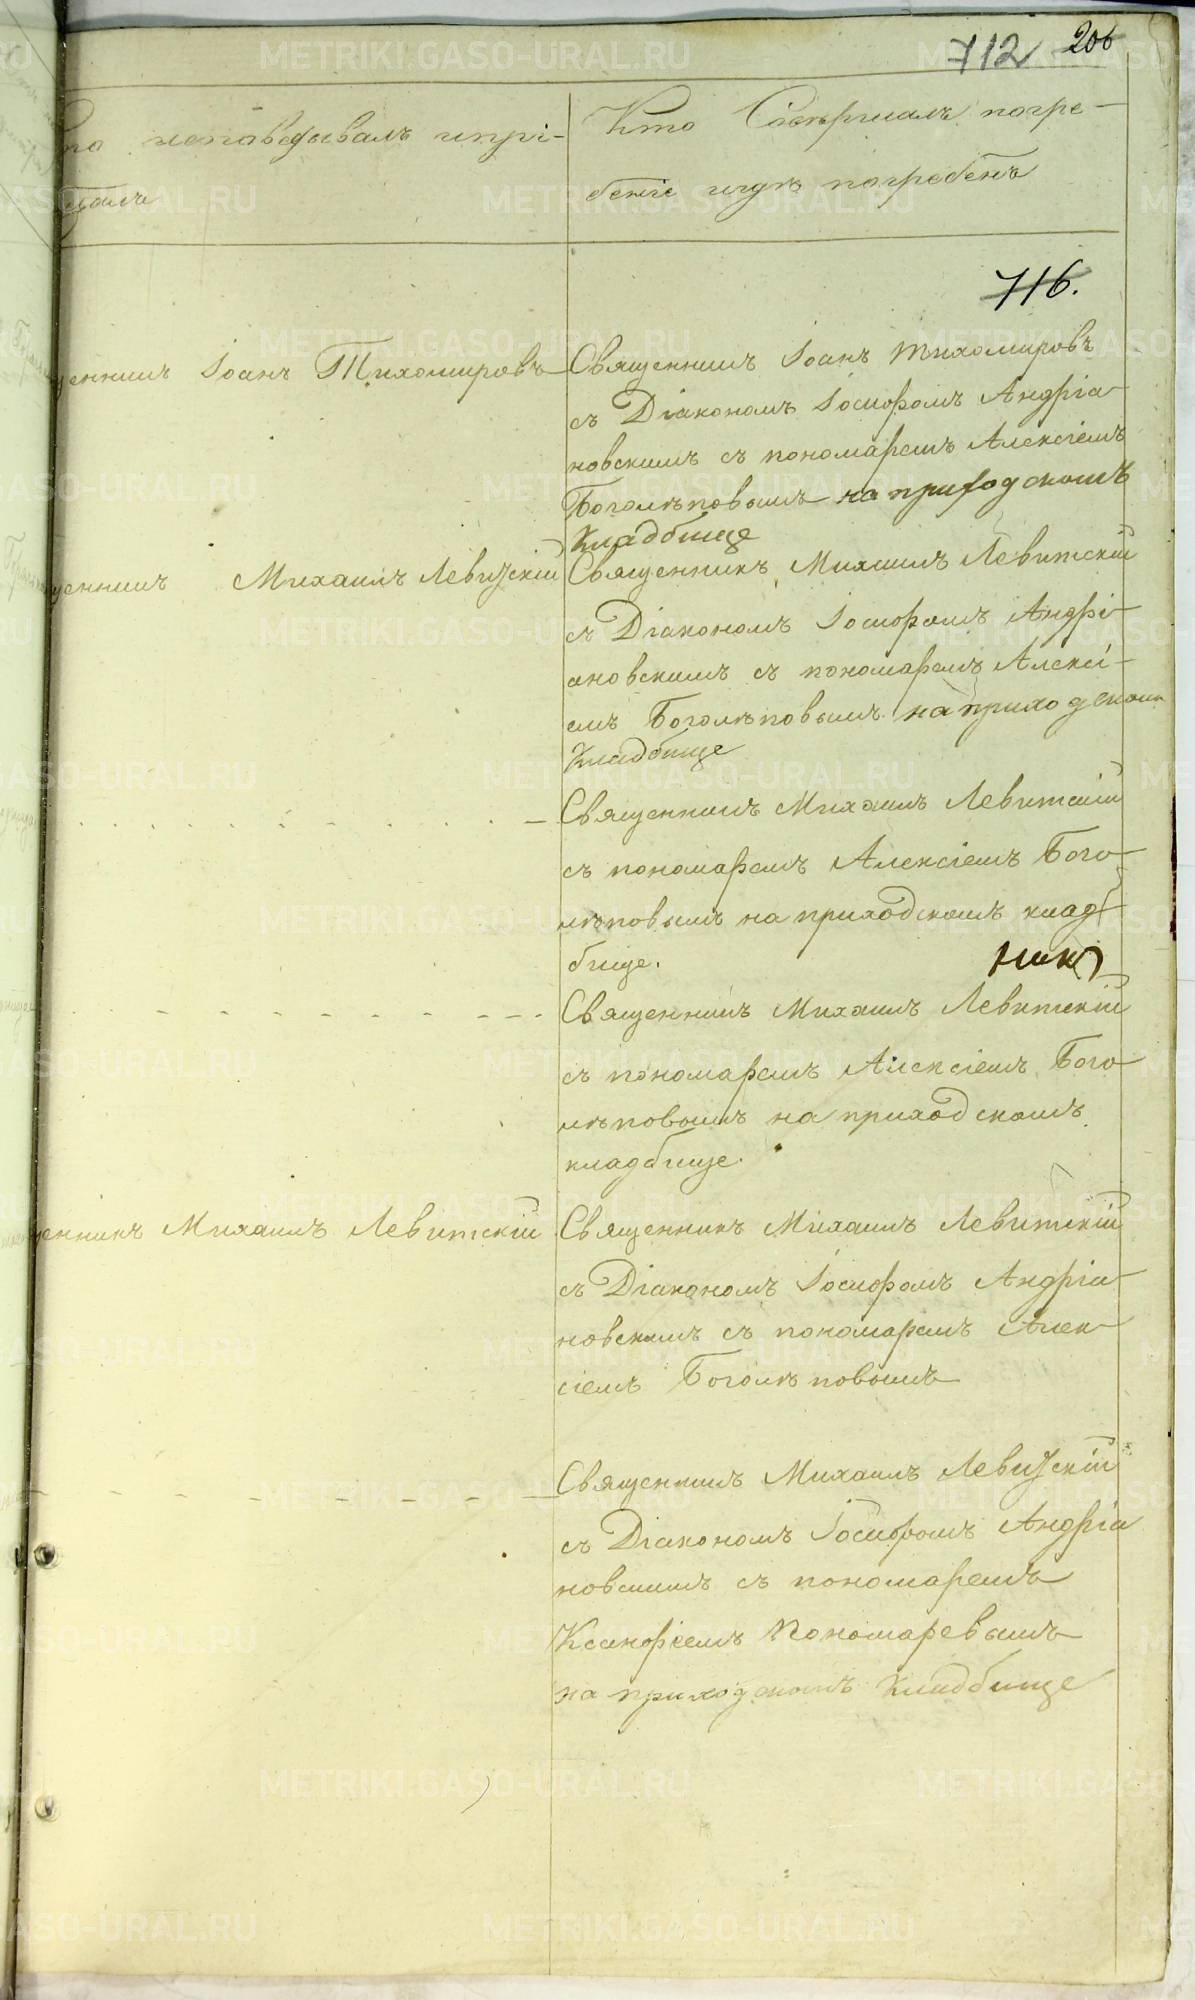 712 206
то исповѣдывалъ и прі-
щалъ
Кто Совершалъ погре-
беніе и гдѣ погребенъ
716.
щенникъ Іоанъ Тихомировъ
Священникъ Іоанъ Тихомировъ
съ Діакономъ Іосифомъ Андріа-
новскимъ съ пономаремъ Алексіемъ
Боголѣповымъ на приходскомъ
Кладбище
щенникъ Михаилъ Левитскій
Священникъ Михаилъ Левитскій
съ Діакономъ Іосифомъ Андрі-
ановскимъ съ пономаремъ Алексі-
емъ Боголѣповымъ на приходскомъ
Кладбище
Священникъ Михаилъ Левитскій
съ пономаремъ Алексіемъ Бого-
лѣповымъ на приходскомъ клад-
бище.
Священникъ Михаилъ Левитскій
съ пономаремъ Алексіемъ Бого
лѣповымъ на приходскомъ
кладбище.
щенникъ Михаилъ Левитскій
Священникъ Михаилъ Левитскій
съ Діакономъ Іосифомъ Андріа-
новскимъ съ пономаремъ Алек-
сіемъ Боголѣповымъ
Священникъ Михаилъ Левитскій
съ Діакономъ Іосифомъ Андріа
новскимъ съ пономаремъ
Ксанфіемъ Пономаревымъ
на приходскомъ Кладбище
METRIKI.GASO-URAL.RU